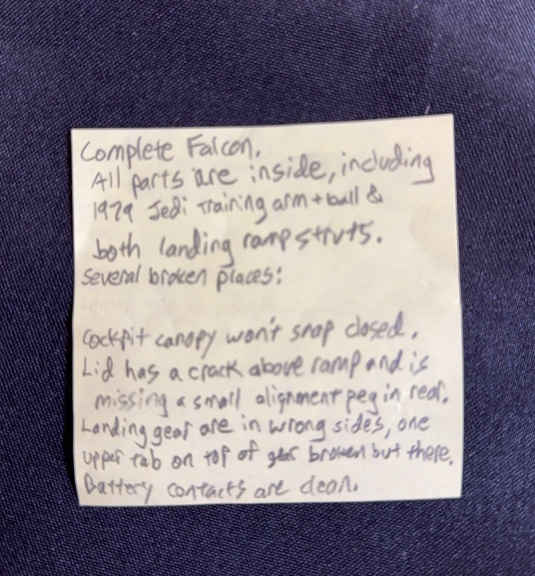 Complete Falcon.
All parts are inside, including
1979 Jedi Training arm + ball &
both landing ramp struts.
Several broken places:
Cockpit canopy won't snap closed.
Lid has a crack above ramp and is
missing a small alignment peg in rear.
Landing gear are in wrong sides, one
upper tab on top of broken but there.
Battery contacts are clean.